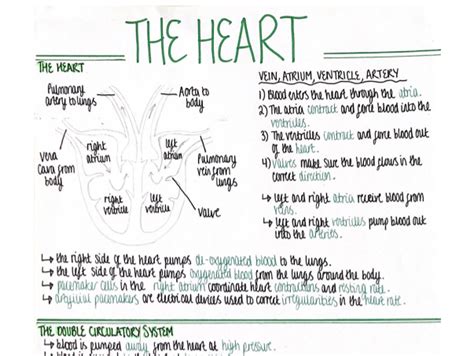 THE HEART
THE HEART
Pulmonary
artery to lungs
Aorta to
body
right
atrium
left
atrium
Vena
Cava from
body
Pulmonary
vein from
lungs
right
ventricle
left
ventricle
valve
VEIN, ATRIUM, VENTRICLE, ARTERY
1) Blood enters the heart through the atria.
2) The atria contract and force blood into the
ventricles.
3) The ventricles contract and force blood out
of the heart.
4) valves make sure the blood flows in the
correct direction.
↳ left and right atria receive blood from
veins.
↳ left and right ventricles pump blood out
into the arteries.
↳ the right side of the heart pumps de-oxygenated blood to the lungs.
↳ the left side of the heart pumps oxygenated blood from the lungs around the body.
↳ pacemaker cells in the right atrium coordinate heart contractions and resting rate.
↳ artificial pacemakers are electrical devices used to correct irregularities in the heart rate.
THE DOUBLE CIRCULATORY SYSTEM
↳ blood is pumped away from the heart at high pressure.